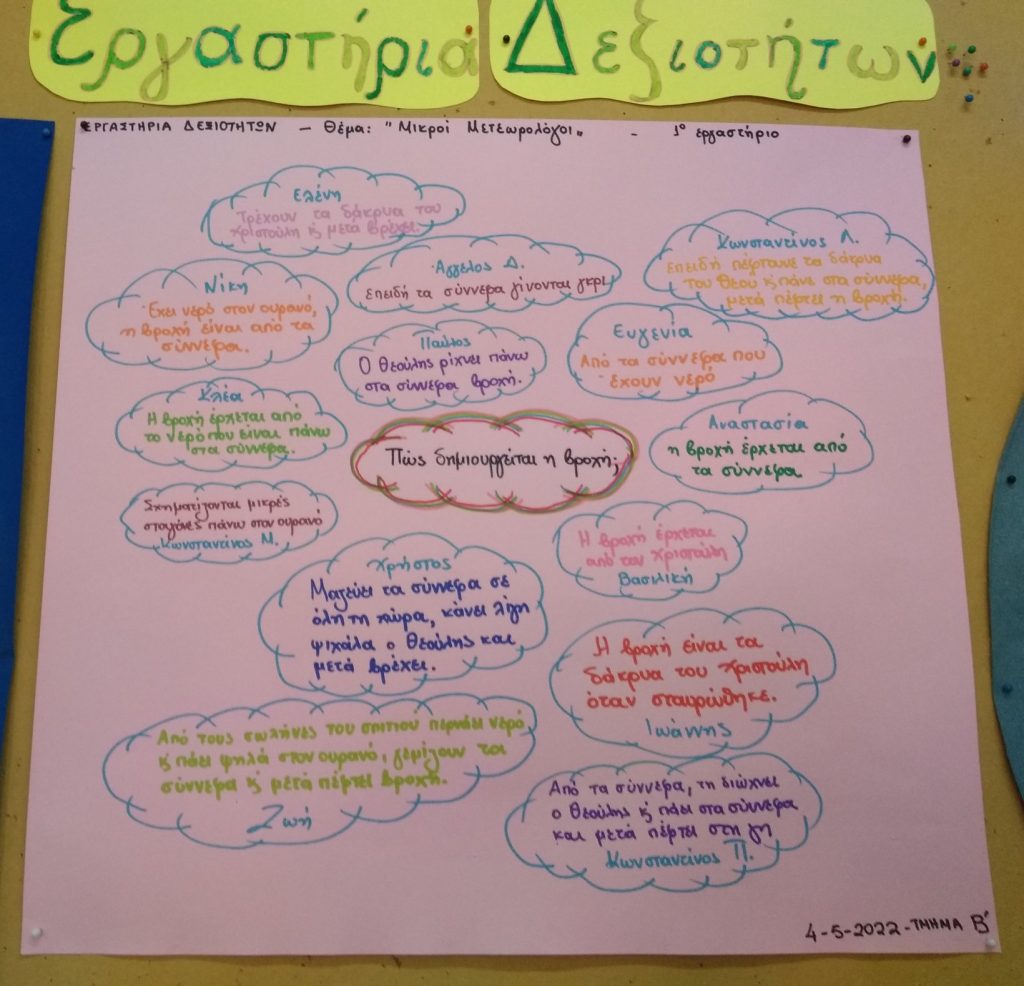 Εργαστήρια Δεξιοτήτων
ΕΡΓΑΣΤΗΡΙΑ ΔΕΞΙΟΤΗΤΩΝ - Θέμα: "Μικροί Μετεωρολόγοι" - 1ο εργαστήριο
Ελένη
Τρέχουν τα δάκρυα του
Χριστούλη κ' μετά βρέχει.
Κωνσταντίνος Λ.
επειδή πέφτουνε τα δάκρυα
του Θεού κ' πάνε στα σύννεφα,
μετά πέφτει η βροχή.
Άγγελος Δ.
επειδή τα σύννεφα γίνονται γκρι
Νίκη
Έχει νερό στον ουρανό,
η βροχή είναι από τα
σύννεφα.
Παύλος
Ο Θεούλης ρίχνει πάνω
στα σύννεφα βροχή.
Ευγενία
Από τα σύννεφα που
έχουν νερό
Κλέα
Η βροχή έρχεται από
το νερό που είναι πάνω
στα σύννεφα.
Πώς δημιουργείται η βροχή;
Αναστασία
η βροχή έρχεται από
τα σύννεφα
Σχηματίζονται μικρές
σταγόνες πάνω στον ουρανό
Κωνσταντίνος Μ.
Η βροχή έρχεται
από τον Χριστούλη
Βασιλική
Χρήστος
Μαζεύει τα σύννεφα σε
όλη τη χώρα, κάνει λίγη
ψιχάλα ο Θεούλης και
μετά βρέχει.
Η βροχή είναι τα
δάκρυα του Χριστούλη
όταν σταυρώθηκε.
Ιωάννης
Από τους σωλήνες του σπιτιού περνάει νερό
κ' πάει ψηλά στον ουρανό, γεμίζουν τα
σύννεφα κ' μετά πέφτει βροχή.
Ζωή
Από τα σύννεφα, τη διώχνει
ο Θεούλης κ' πάει στα σύννεφα
και μετά πέφτει στη γη
Κωνσταντίνος Π.
4-5-2022 - ΤΜΗΜΑ Β'